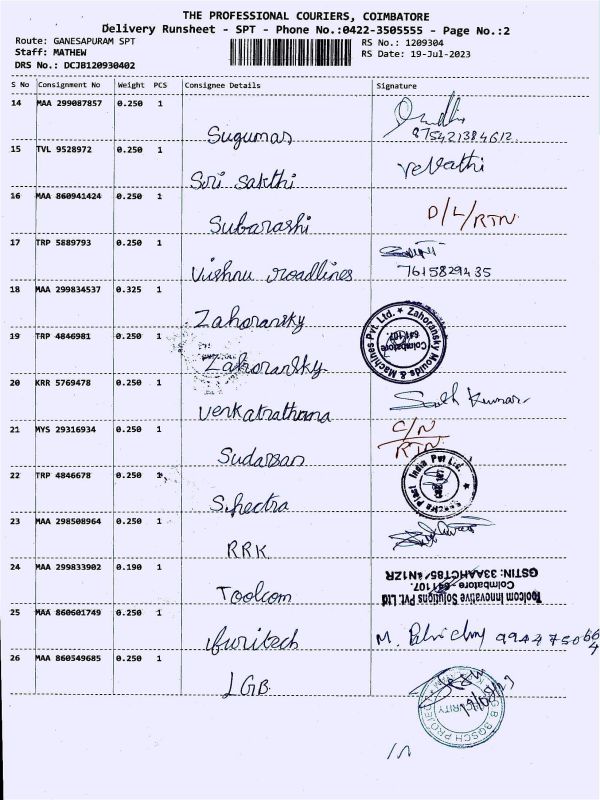 THE PROFESSIONAL COURIERS, COIMBATORE
Delivery Runsheet - SPT - Phone No.:0422-3505555 - Page No.:2
Route: GANESAPURAM SPT
RS No.: 1209304
Staff: MATHEW
RS Date: 19-Jul-2023
DRS No.: DCJB120930402
S No Consignment No Weight PCS Consignee Details Signature
14 MAA 299087857 0.250 1
Sugumar 875421384612
15 TVL 9528972 0.250 1
Sri sakthi revathi
16 MAA 860941424 0.250 1
Subarashi D/L/RTN
17 TRP 5889793 0.250 1
Vishnu roadlines 7615829435
18 MAA 299834537 0.325 1
Zahoransky Zahoransky Moulds & Machines Pvt Ltd. Coimbatore 641 107.
19 TRP 4846981 0.250 1
Zahoransky
20 KRR 5769478 0.250 1
Venkatrathnna Kumar
21 MYS 29316934 0.250 1
Sudarsan C/N RTN
22 TRP 4846678 0.250 1
Sphectra Plast India Pvt Ltd.
23 MAA 298508964 0.250 1
RRK
24 MAA 299833902 0.190 1
Toolcom Toolcom Innovative Solutions Pvt. Ltd
Coimbatore - 641 107.
25 MAA 860601749 0.250 1
M. 9944750664
26 MAA 860549685 0.250 1
LGB BOSCH PROJECT